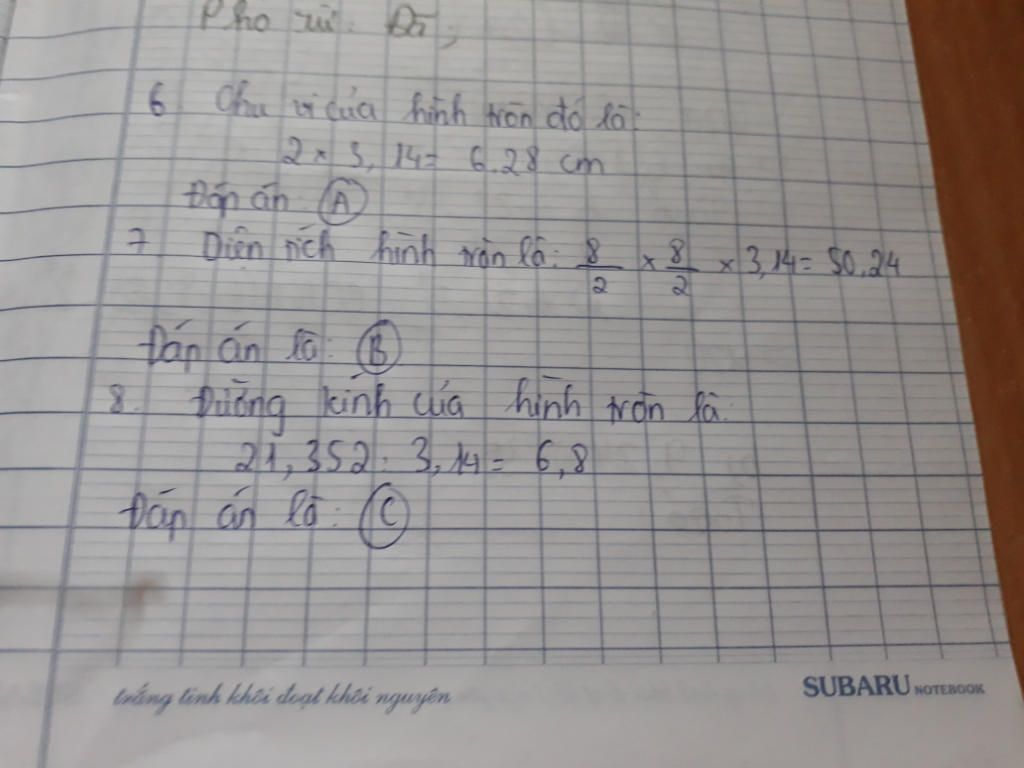 6 Chu vi của hình tròn đó là:
2 × 3,14 = 6.28 cm
Đáp án: A
7 Diện tích hình tròn là: 8/2 × 8/2 × 3,14 = 50.24
Đáp án là: B
8. Đường kính của hình tròn là:
21,352 : 3,14 = 6,8
Đáp án là: C
trắng tinh khôi đoạt khôi nguyên
SUBARU NOTEBOOK